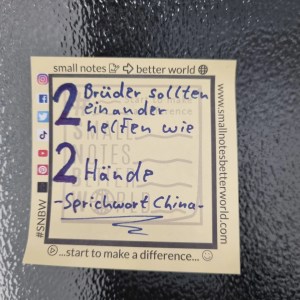 small notes better world
2 Brüder sollten
einander
helfen wie
2 Hände
-Sprichwort China-
...start to make a difference...
#SNBW
www.smallnotesbetterworld.com
SMALL
NOTES
BETTER
WORLD